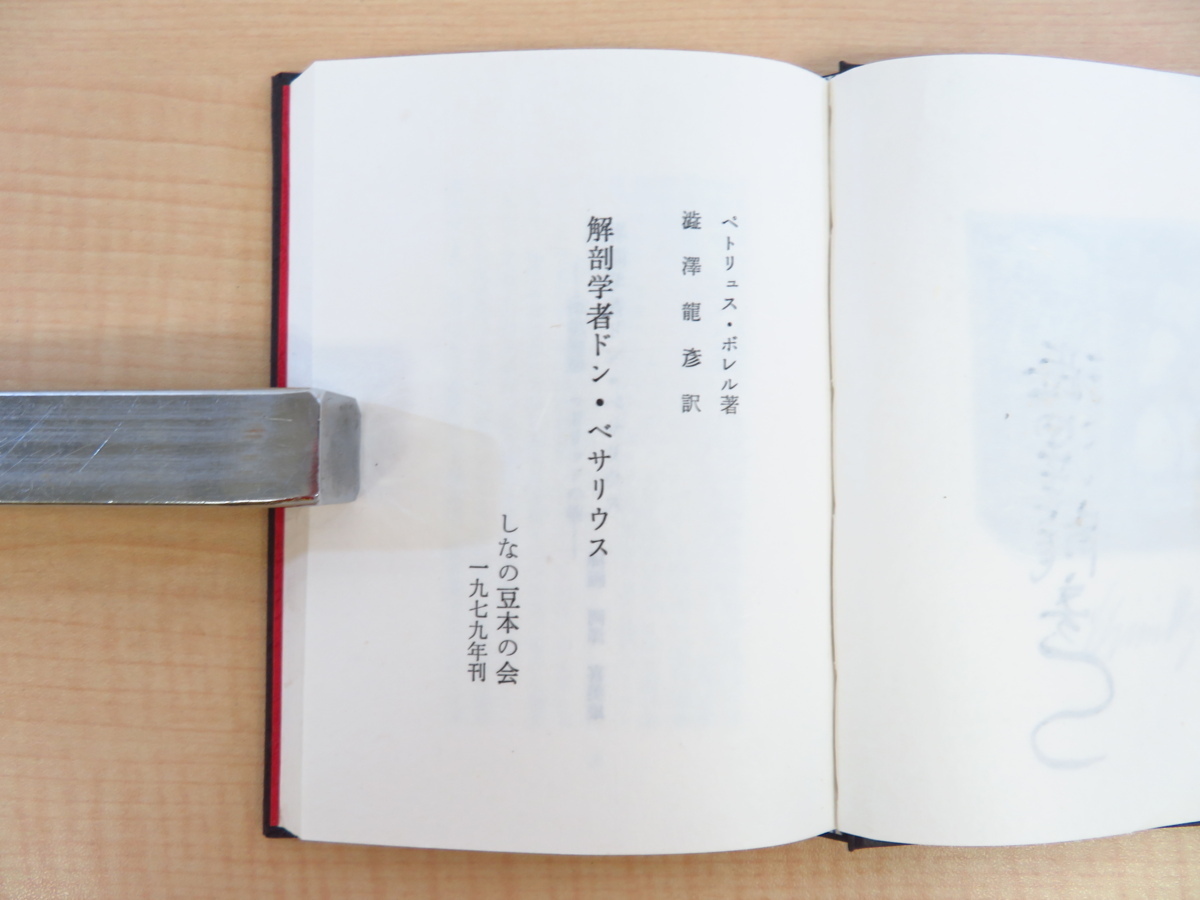 ペトリュス・ボレル著
澁澤龍彦訳
解剖学者ドン・ベサリウス
しなの豆本の会
一九七九年刊